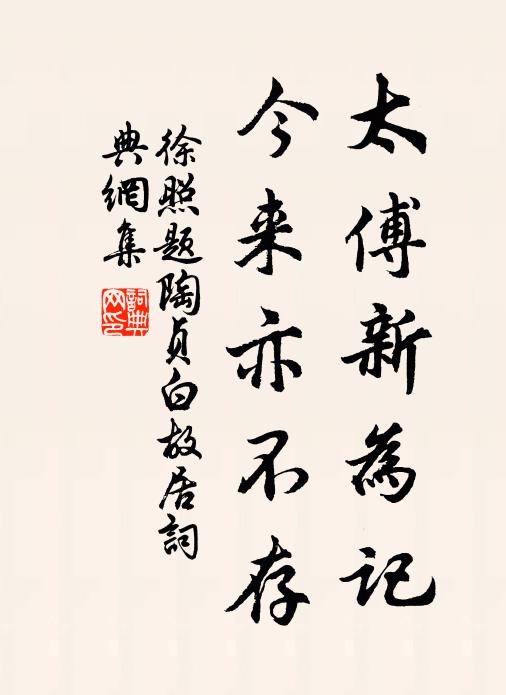 太傅新為記
今来亦不存
徐照题陶贞白故居詞
典網集
詞典
网印